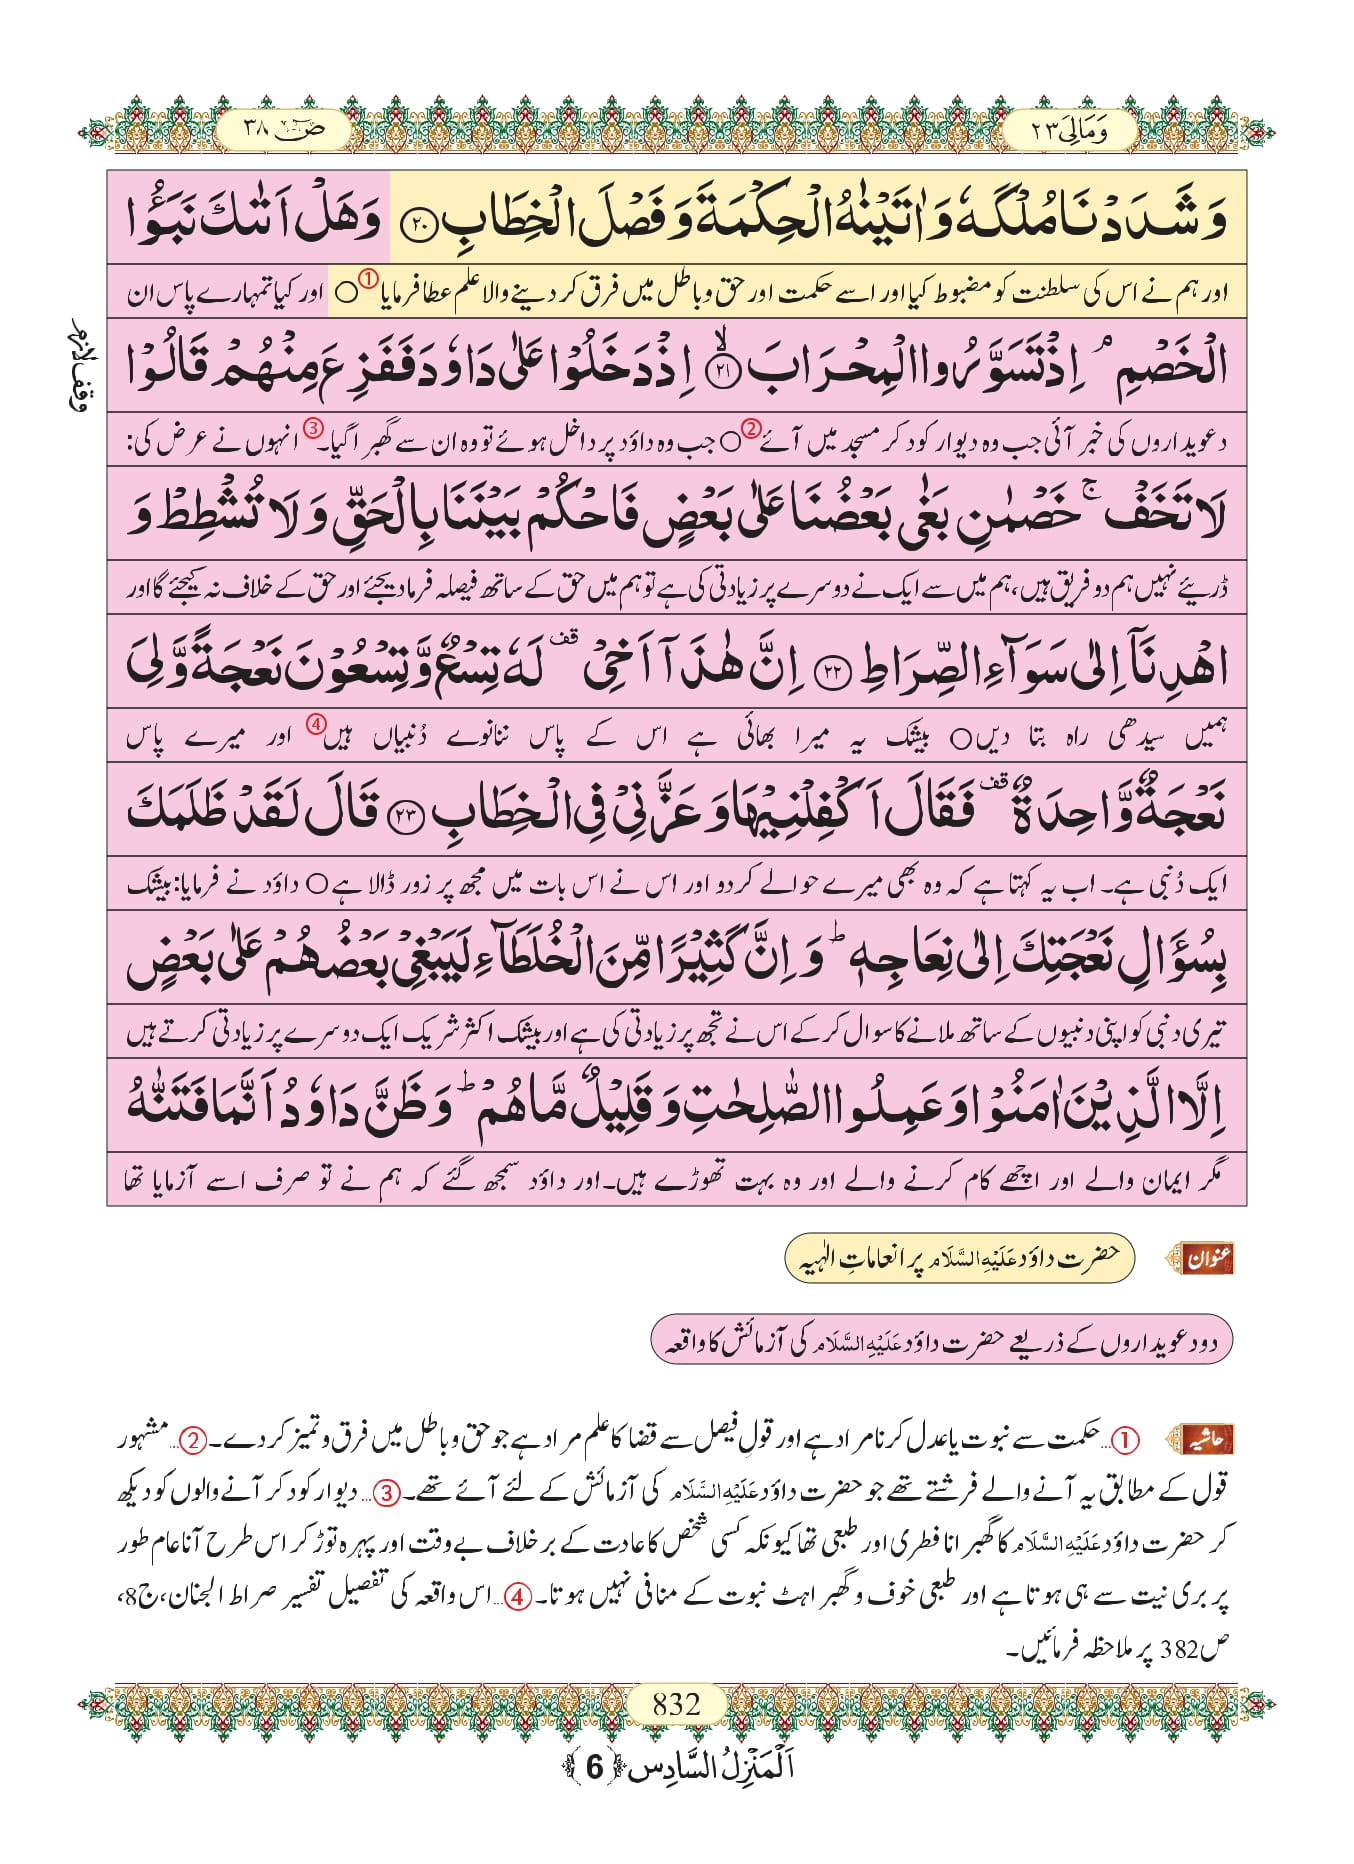 وَمَالِیَ ٢٣
صٓ ٣٨
وَ شَدَدْنَا مُلْكَهٗ وَ اٰتَیْنٰهُ الْحِكْمَةَ وَ فَصْلَ الْخِطَابِ ﴿٢٠﴾ وَ هَلْ اَتٰىكَ نَبَؤُا
اور ہم نے اس کی سلطنت کو مضبوط کیا اور اسے حکمت اور حق و باطل میں فرق کر دینے والا علم عطا فرمایا ① ○ اور کیا تمہارے پاس ان
الْخَصْمِ ۘ اِذْ تَسَوَّرُوا الْمِحْرَابَ ۙ﴿٢١﴾ اِذْ دَخَلُوْا عَلٰى دَاوٗدَ فَفَزِعَ مِنْهُمْ قَالُوْا
وقف لازم
دعویداروں کی خبر آئی جب وہ دیوار کود کر مسجد میں آئے ② ○ جب وہ داؤد پر داخل ہوئے تو وہ ان سے گھبرا گیا۔ ③ انہوں نے عرض کی:
لَا تَخَفْ ۚ خَصْمٰنِ بَغٰى بَعْضُنَا عَلٰى بَعْضٍ فَاحْكُمْ بَیْنَنَا بِالْحَقِّ وَ لَا تُشْطِطْ وَ
ڈریئے نہیں ہم دو فریق ہیں، ہم میں سے ایک نے دوسرے پر زیادتی کی ہے تو ہم میں حق کے ساتھ فیصلہ فرما دیجئے اور حق کے خلاف نہ کیجئے گا اور
اهْدِنَاۤ اِلٰى سَوَآءِ الصِّرَاطِ ﴿٢٢﴾ اِنَّ هٰذَاۤ اَخِیْ ۫ لَهٗ تِسْعٌ وَّ تِسْعُوْنَ نَعْجَةً وَّ لِیَ
ہمیں سیدھی راہ بتا دیں ○ بیشک یہ میرا بھائی ہے اس کے پاس ننانوے دُنبیاں ہیں ④ اور میرے پاس
نَعْجَةٌ وَّاحِدَةٌ ۫ فَقَالَ اَكْفِلْنِیْهَا وَ عَزَّنِیْ فِی الْخِطَابِ ﴿٢٣﴾ قَالَ لَقَدْ ظَلَمَكَ
ایک دُنبی ہے۔ اب یہ کہتا ہے کہ وہ بھی میرے حوالے کردو اور اس نے اس بات میں مجھ پر زور ڈالا ہے ○ داؤد نے فرمایا: بیشک
بِسُؤَالِ نَعْجَتِكَ اِلٰى نِعَاجِهٖ ؕ وَ اِنَّ كَثِیْرًا مِّنَ الْخُلَطَآءِ لَیَبْغِیْ بَعْضُهُمْ عَلٰى بَعْضٍ
تیری دنبی کو اپنی دنبیوں کے ساتھ ملانے کا سوال کر کے اس نے تجھ پر زیادتی کی ہے اور بیشک اکثر شریک ایک دوسرے پر زیادتی کرتے ہیں
اِلَّا الَّذِیْنَ اٰمَنُوْا وَ عَمِلُوا الصّٰلِحٰتِ وَ قَلِیْلٌ مَّا هُمْ ؕ وَ ظَنَّ دَاوٗدُ اَنَّمَا فَتَنّٰهُ
مگر ایمان والے اور اچھے کام کرنے والے اور وہ بہت تھوڑے ہیں۔ اور داؤد سمجھ گئے کہ ہم نے تو صرف اسے آزمایا تھا
عنوان حضرت داؤد عَلَیْہِ السَّلَام پر انعاماتِ الٰہیہ
دو دعویداروں کے ذریعے حضرت داؤد عَلَیْہِ السَّلَام کی آزمائش کا واقعہ
حاشیہ ①... حکمت سے نبوت یا عدل کرنا مراد ہے اور قولِ فیصل سے قضا کا علم مراد ہے جو حق و باطل میں فرق و تمیز کر دے۔ ②... مشہور
قول کے مطابق یہ آنے والے فرشتے تھے جو حضرت داؤد عَلَیْہِ السَّلَام کی آزمائش کے لئے آئے تھے۔ ③... دیوار کود کر آنے والوں کو دیکھ
کر حضرت داؤد عَلَیْہِ السَّلَام کا گھبرانا فطری اور طبعی تھا کیونکہ کسی شخص کا عادت کے برخلاف بے وقت اور پہرہ توڑ کر اس طرح آنا عام طور
پر بری نیت سے ہی ہوتا ہے اور طبعی خوف و گھبراہٹ نبوت کے منافی نہیں ہوتا۔ ④... اس واقعہ کی تفصیل تفسیر صراط الجنان، ج8،
ص382 پر ملاحظہ فرمائیں۔
832
اَلْمَنْزِلُ السَّادِس ﴿6﴾